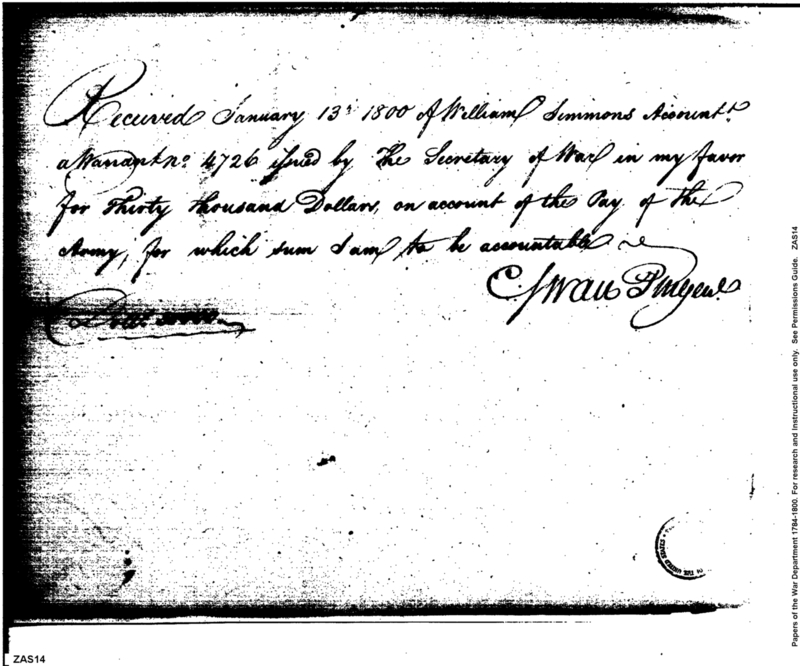 Received January 13th 1800 of William Simmons Accountt
a Warrant no. 4726 issued by the Secretary of War in my favor
for Thirty thousand Dollars, on account of the Pay of the
Army, for which sum I am to be accountable
C Swan P M Genl.
Dolls. 30000.
ZAS14
Papers of the War Department 1784-1800. For research and instructional use only. See Permissions Guide. ZAS14